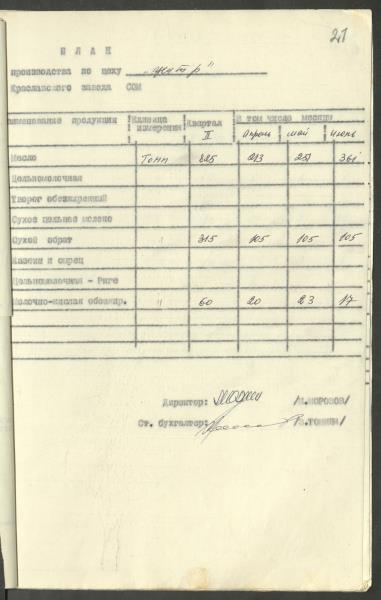 21
П Л А Н
производства по цеху "центр"
Краславского завода СОМ
наименование продукции Единица измерения Квартал II В том числе месяцы
апрель май июнь
Масло Тонн 825 213 251 361
Цельномолочная
Творог обезжиренный
Сухое цельное молоко
Сухой обрат " 315 105 105 105
Казеин и сырец
Цельномолочная - Риге
Молочно-кислая обезжир. " 60 20 23 17
Директор: /МОРОЗОВ/
Ст. бухгалтер: